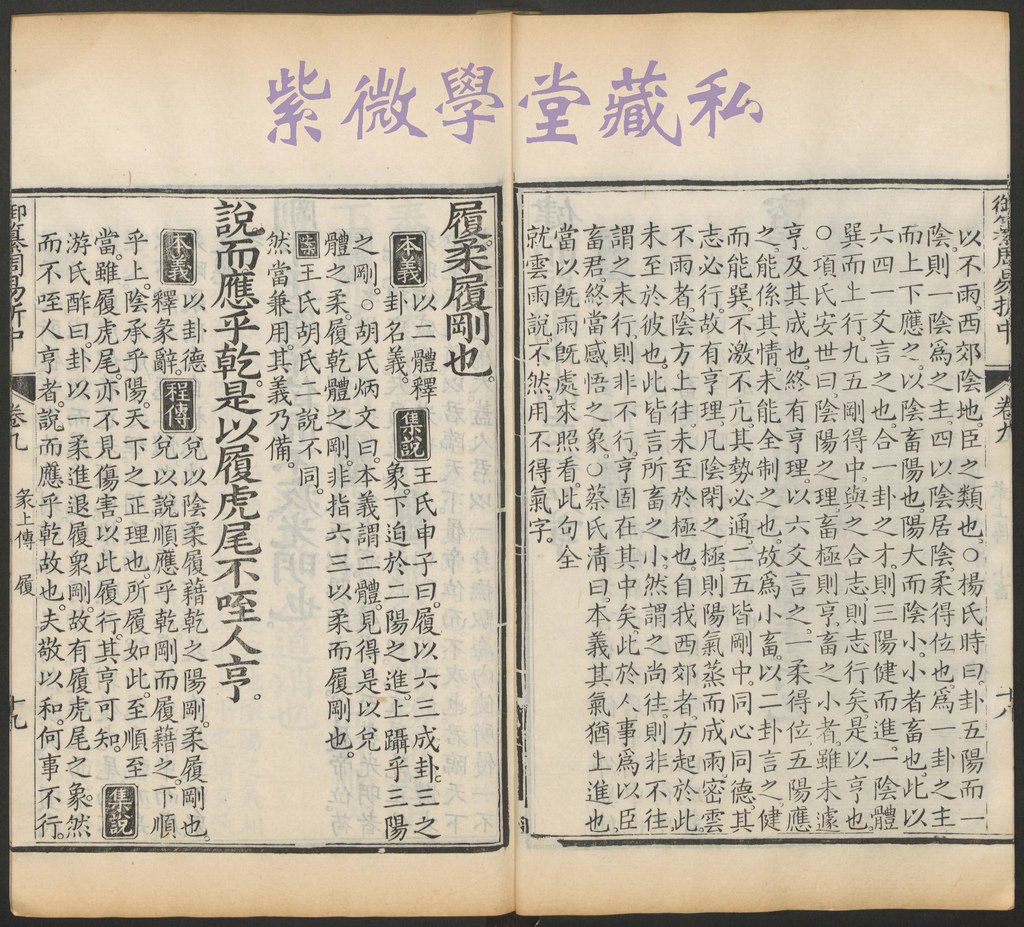 紫微學堂藏私
御纂周易折中
卷九
十八
以不雨西郊陰地臣之類也○楊氏時曰卦五陽而一
陰則一陰爲之主四以陰居陰柔得位也爲一卦之主
而上下應之以陰畜陽也陽大而陰小小者畜也此以
六四一爻言之也合一卦之才則三陽健而進一陰體
巽而上行九五剛得中與之合志則志行矣是以亨也
○項氏安世曰陰陽之理畜極則亨畜之小者雖未遽
亨及其成也終有亨理以六爻言之一柔得位五陽應
之能係其情未能全制之也故爲小畜以二卦言之健
而能巽不激不亢其勢必通二五皆剛中同心同德其
志必行故有亨理凡陰閉之極則陽氣蒸而成雨密雲
不雨者陰方上往未至於極也自我西郊者方起於此
未至於彼也此皆言所畜之小然謂之尚往則非不往
謂之未行則非不行亨固在其中矣此於人事爲以臣
畜君終當感悟之象○蔡氏清曰本義其氣猶上進也
當以旣雨旣處來照看此句全
就雲雨說不然用不得氣字
履柔履剛也
本義 以二體釋 集說 王氏申子曰履以六三成卦三之
卦名義 象下迫於二陽之進上躡乎三陽
之剛○胡氏炳文曰本義謂二體見得是以兌
體之柔履乾體之剛非指六三以柔而履剛也
案 王氏胡氏二說不同
然當兼用其義乃備
說而應乎乾是以履虎尾不咥人亨
本義 以卦德 程傳 兌以陰柔履藉乾之陽剛柔履剛也
釋彖辭 兌以說順應乎乾剛而履藉之下順
乎上陰承乎陽天下之正理也所履如此至順至
當雖履虎尾亦不見傷害以此履行其亨可知 集說
游氏酢曰卦以一柔進退履衆剛故有履虎尾之象然
而不咥人亨者說而應乎乾故也夫敬以和何事不行
御纂周易折中
卷九
彖上傳 履
十九